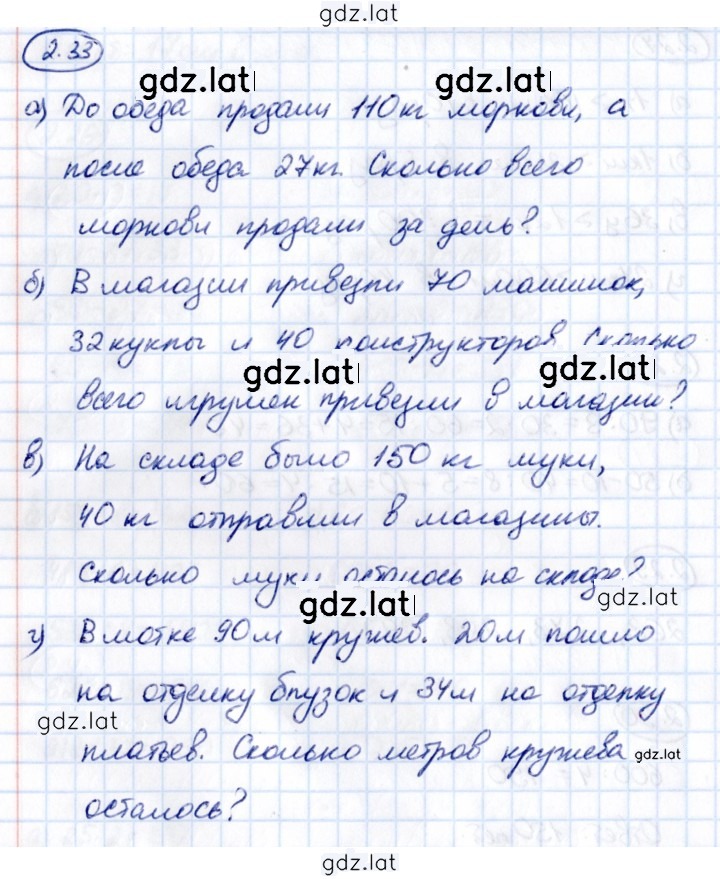 gdz.lat
2.33
gdz.lat gdz.lat
а) До обеда продали 110 кг моркови, а
после обеда 27 кг. Сколько всего
моркови продали за день?
б) В магазин привезли 70 машинок,
32 куклы и 40 конструкторов. Сколько
gdz.lat gdz.lat
всего игрушек привезли в магазин?
в) На складе было 150 кг муки,
40 кг отправили в магазины.
Сколько муки осталось на складе?
gdz.lat gdz.lat
г) В мотке 90 м кружев. 20 м пошло
на отделку блузок и 34 м на отделку
gdz.lat
платьев. Сколько метров кружева gdz.lat
осталось?
gdz.lat